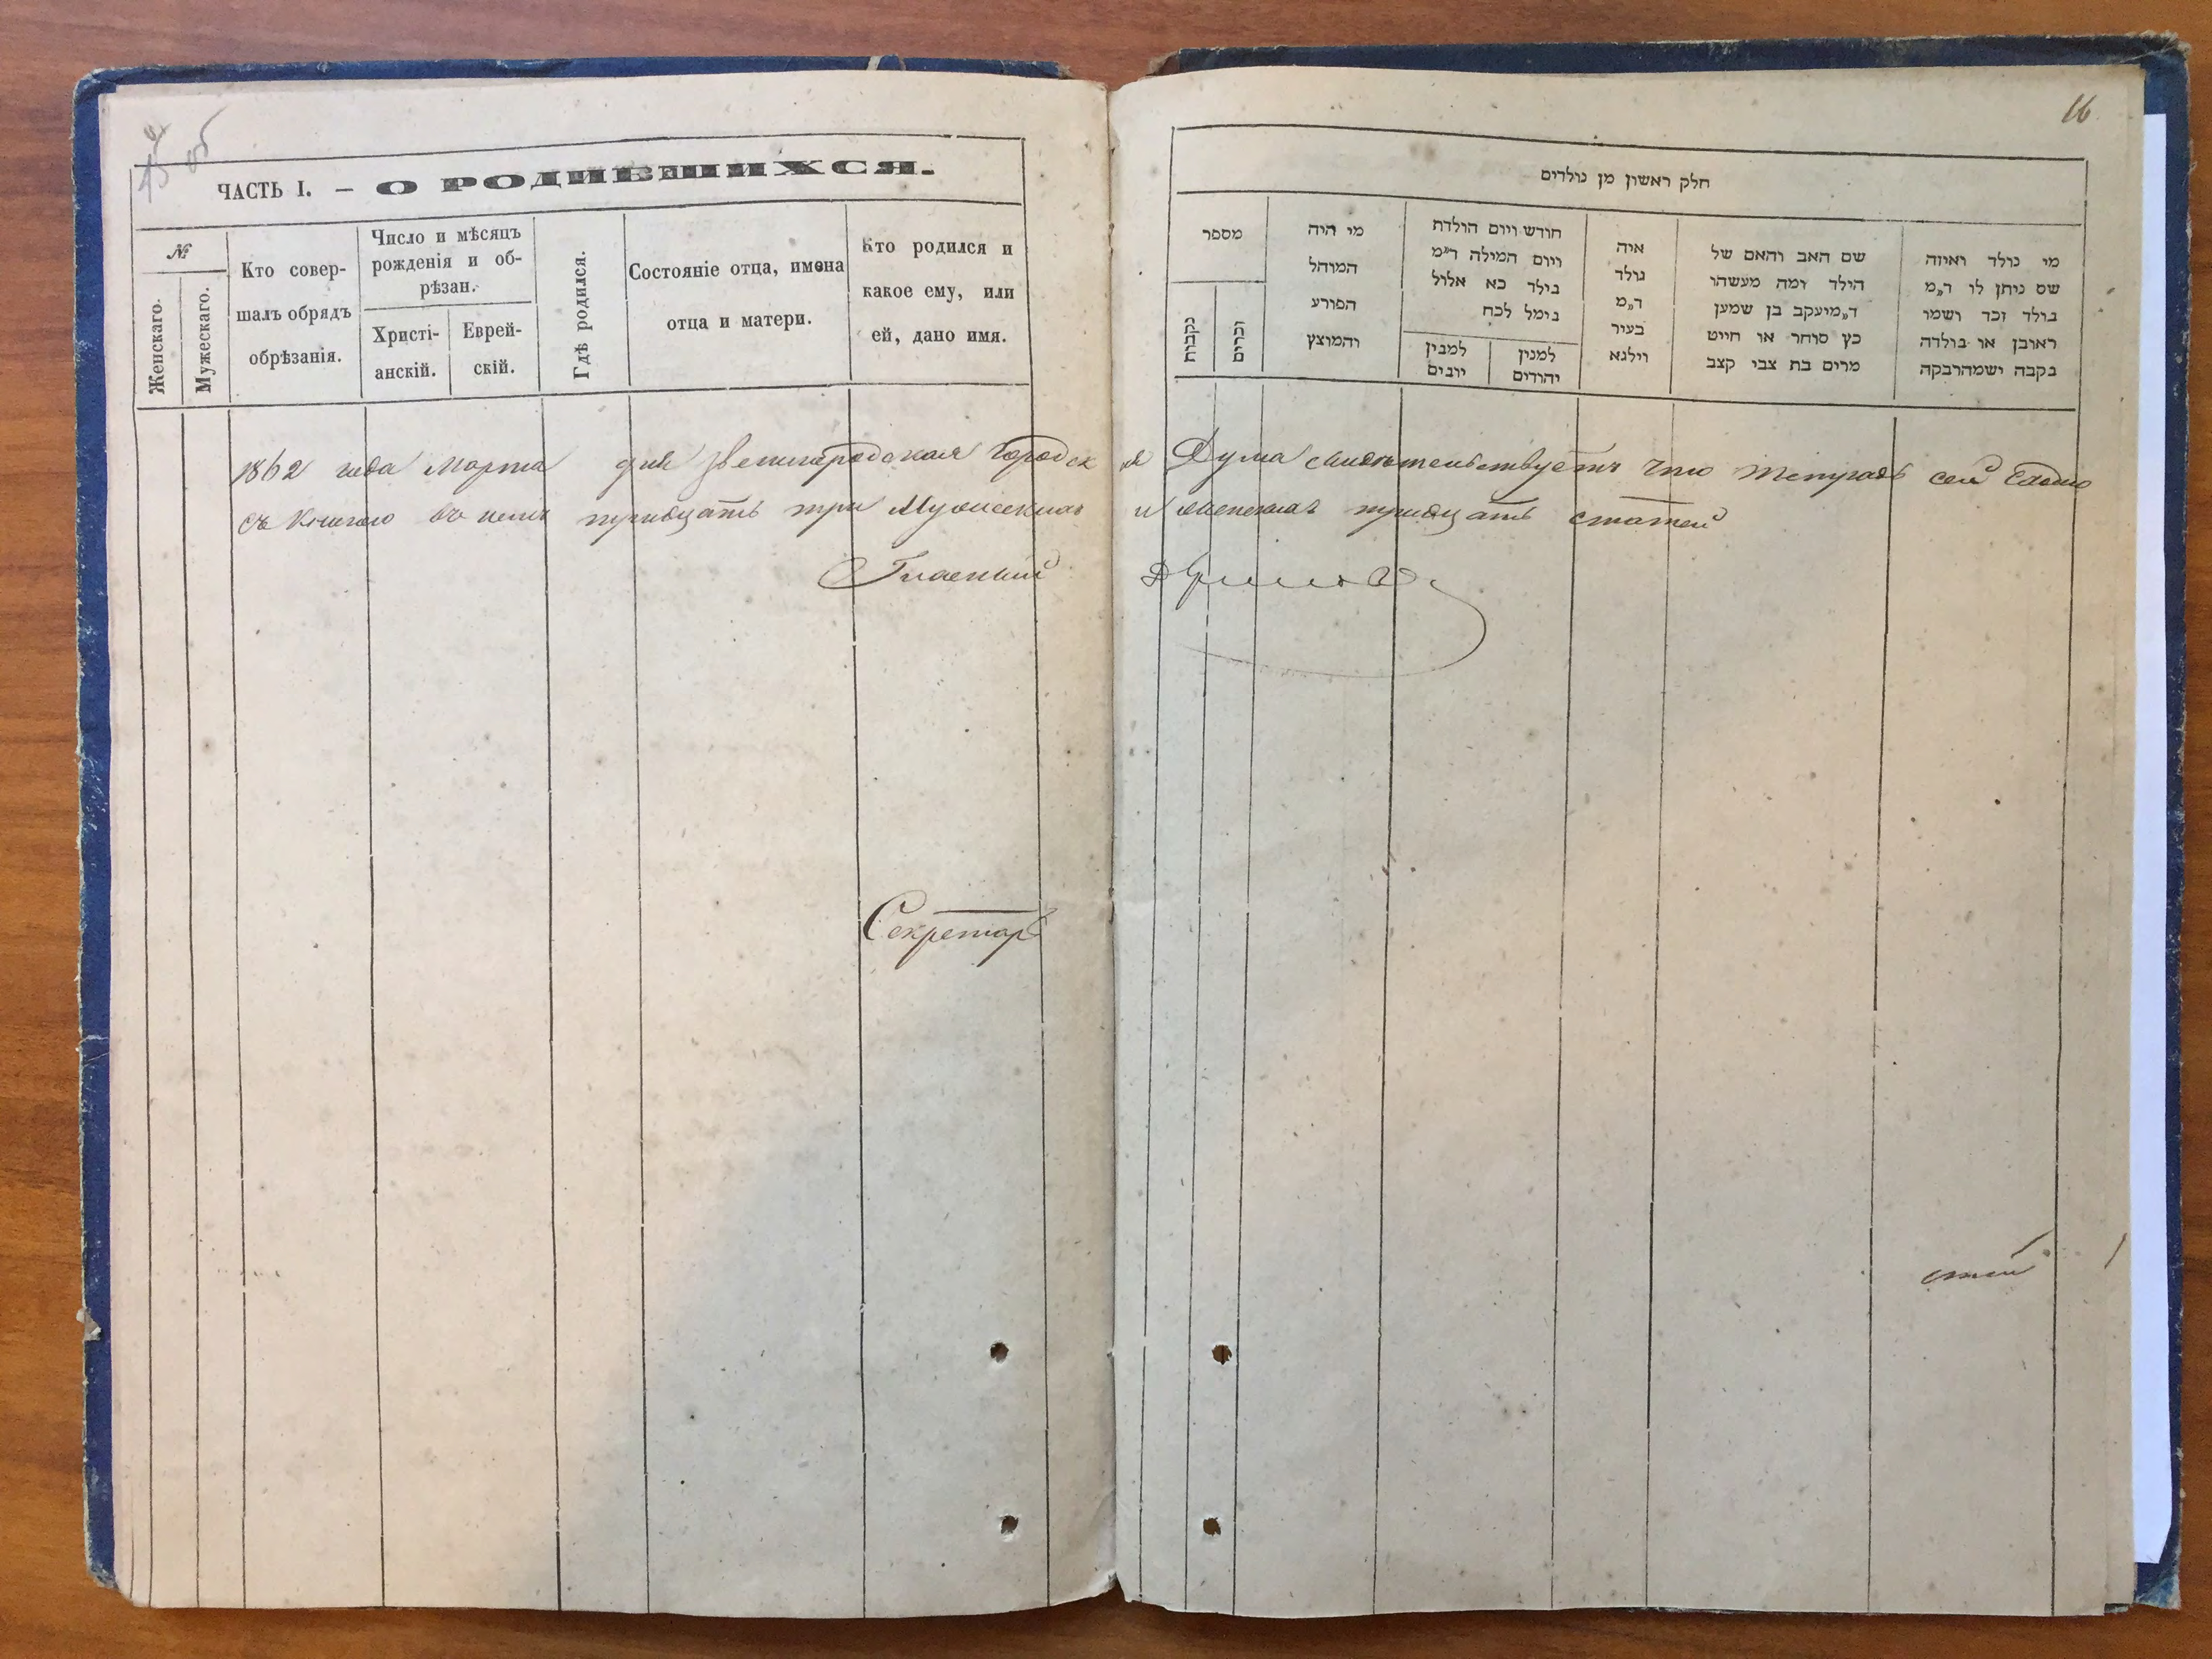 15 об
ЧАСТЬ I. — О РОДИВШИХСЯ.
№
Женскаго.
Мужескаго.
Кто совер-
шалъ обрядъ
обрѣзанія.
Число и мѣсяцъ
рожденія и об-
рѣзан.
Христі-
анскій.
Еврей-
скій.
Гдѣ родился.
Состояніе отца, имена
отца и матери.
Кто родился и
какое ему, или
ей, дано имя.
16
חלק ראשון מן נולדים
מספר
נקבות
זכרים
מי היה
המוהל
הפורע
והמוצץ
חודש ויום הולדת
ויום המילה ד״מ
נולד כא אלול
נימל לכח
למנין
יונים
למנין
יהודים
איה
נולד
ד״מ
בעיר
ווילנא
שם האב והאם של
הילד ומה מעשהו
ד״מ יעקב בן שמעון
כץ סוחר או חייט
מרים בת צבי קצב
מי נולד ואיזה
שם ניתן לו ד״מ
נולד זכר ושמו
ראובן או נולדה
נקבה ושמה רבקה
1862 года Марта дня Звенигородская Городская Дума свидѣтельствуетъ что тетрадь сей
съ книгою въ ней тридцать три Мужеская и женская тридцать статей
Гласный
Секретарь